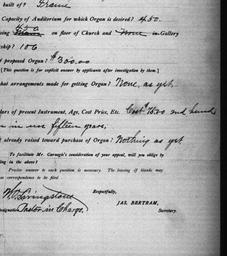 built of? Frame
Capacity of Auditorium for which Organ is desired? 450.
on floor of Church and None in Gallery
ship? 106
proposed Organ? $300.00
[This question is for explicit answer by applicants after investigation by them.]
hat arrangements made for getting Organ? None, as yet.
lars of present Instrument, Age, Cost Price, Etc. Cost $1500 2nd hand
in use fifteen years.
already raised toward purchase of Organ? Nothing as yet
To facilitate Mr. Carnegie's consideration of your appeal, will you oblige by
ing in the above?
Precise answer to each question is necessary. The leaving of blanks may
as correspondence to be filed.
Respectfully,
Livingstone
JAS. BERTRAM,
Pastor in Charge.
Secretary.